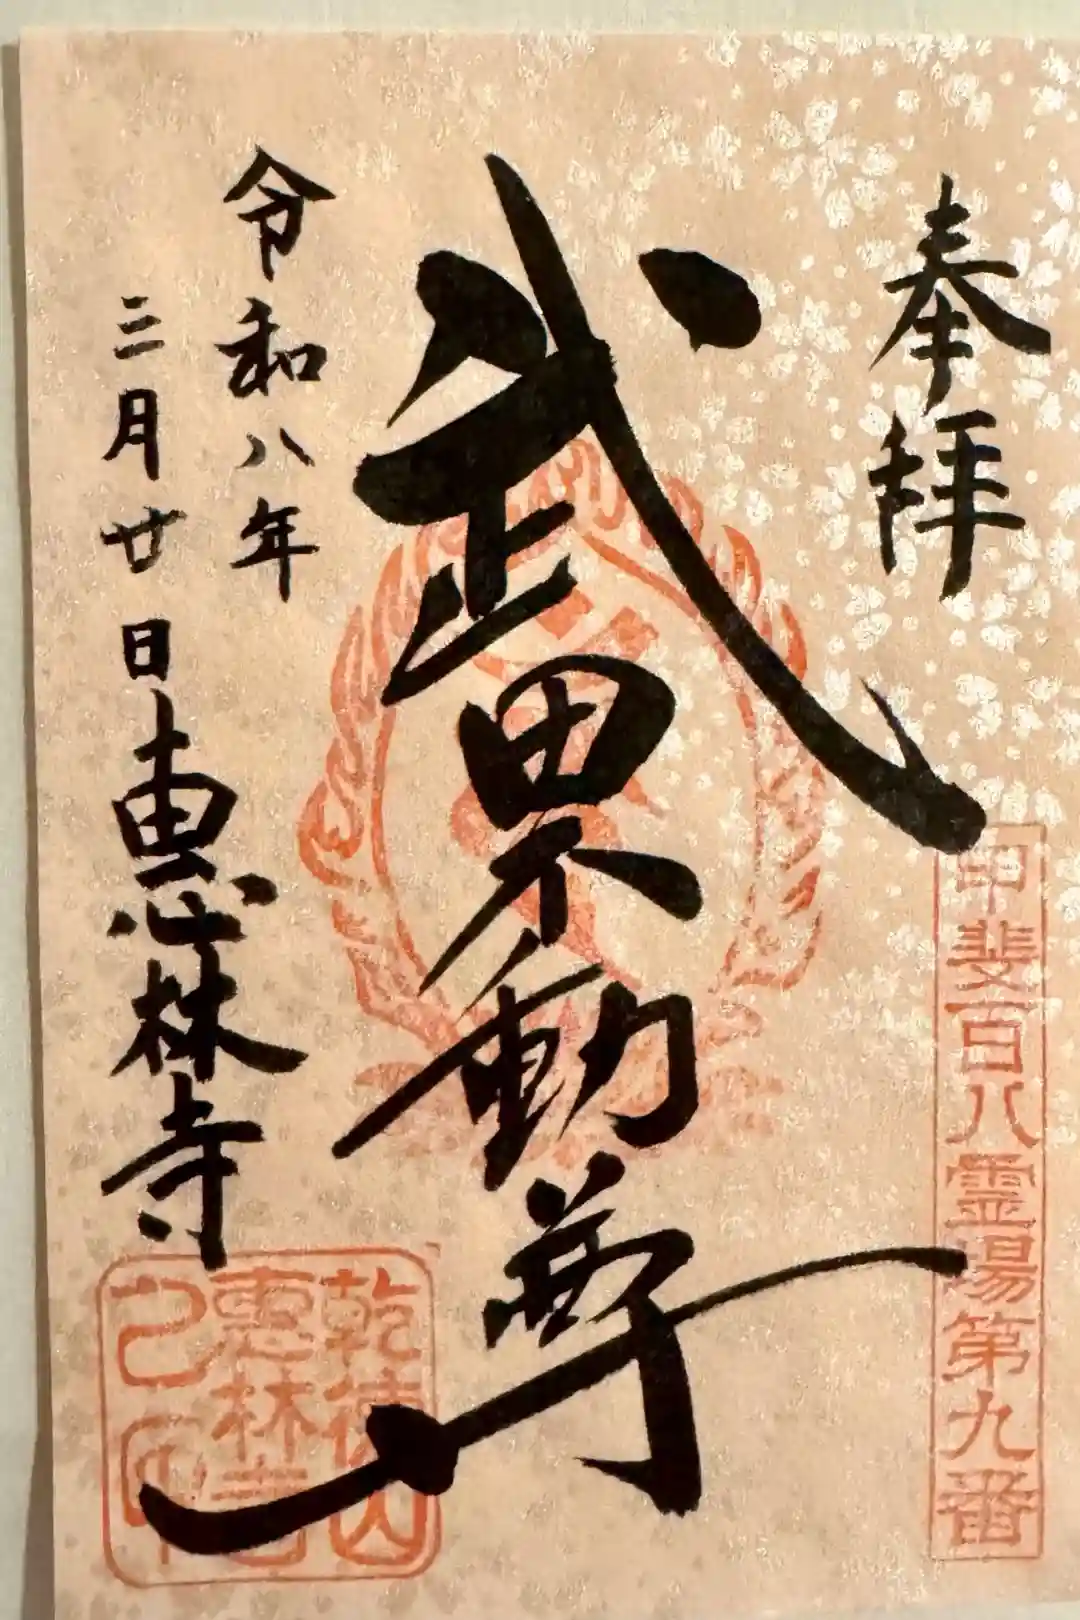 奉拝
甲斐百八霊場第九番
武田不動尊
令和八年
三月廿日
恵林寺
乾徳山
恵林寺
之印